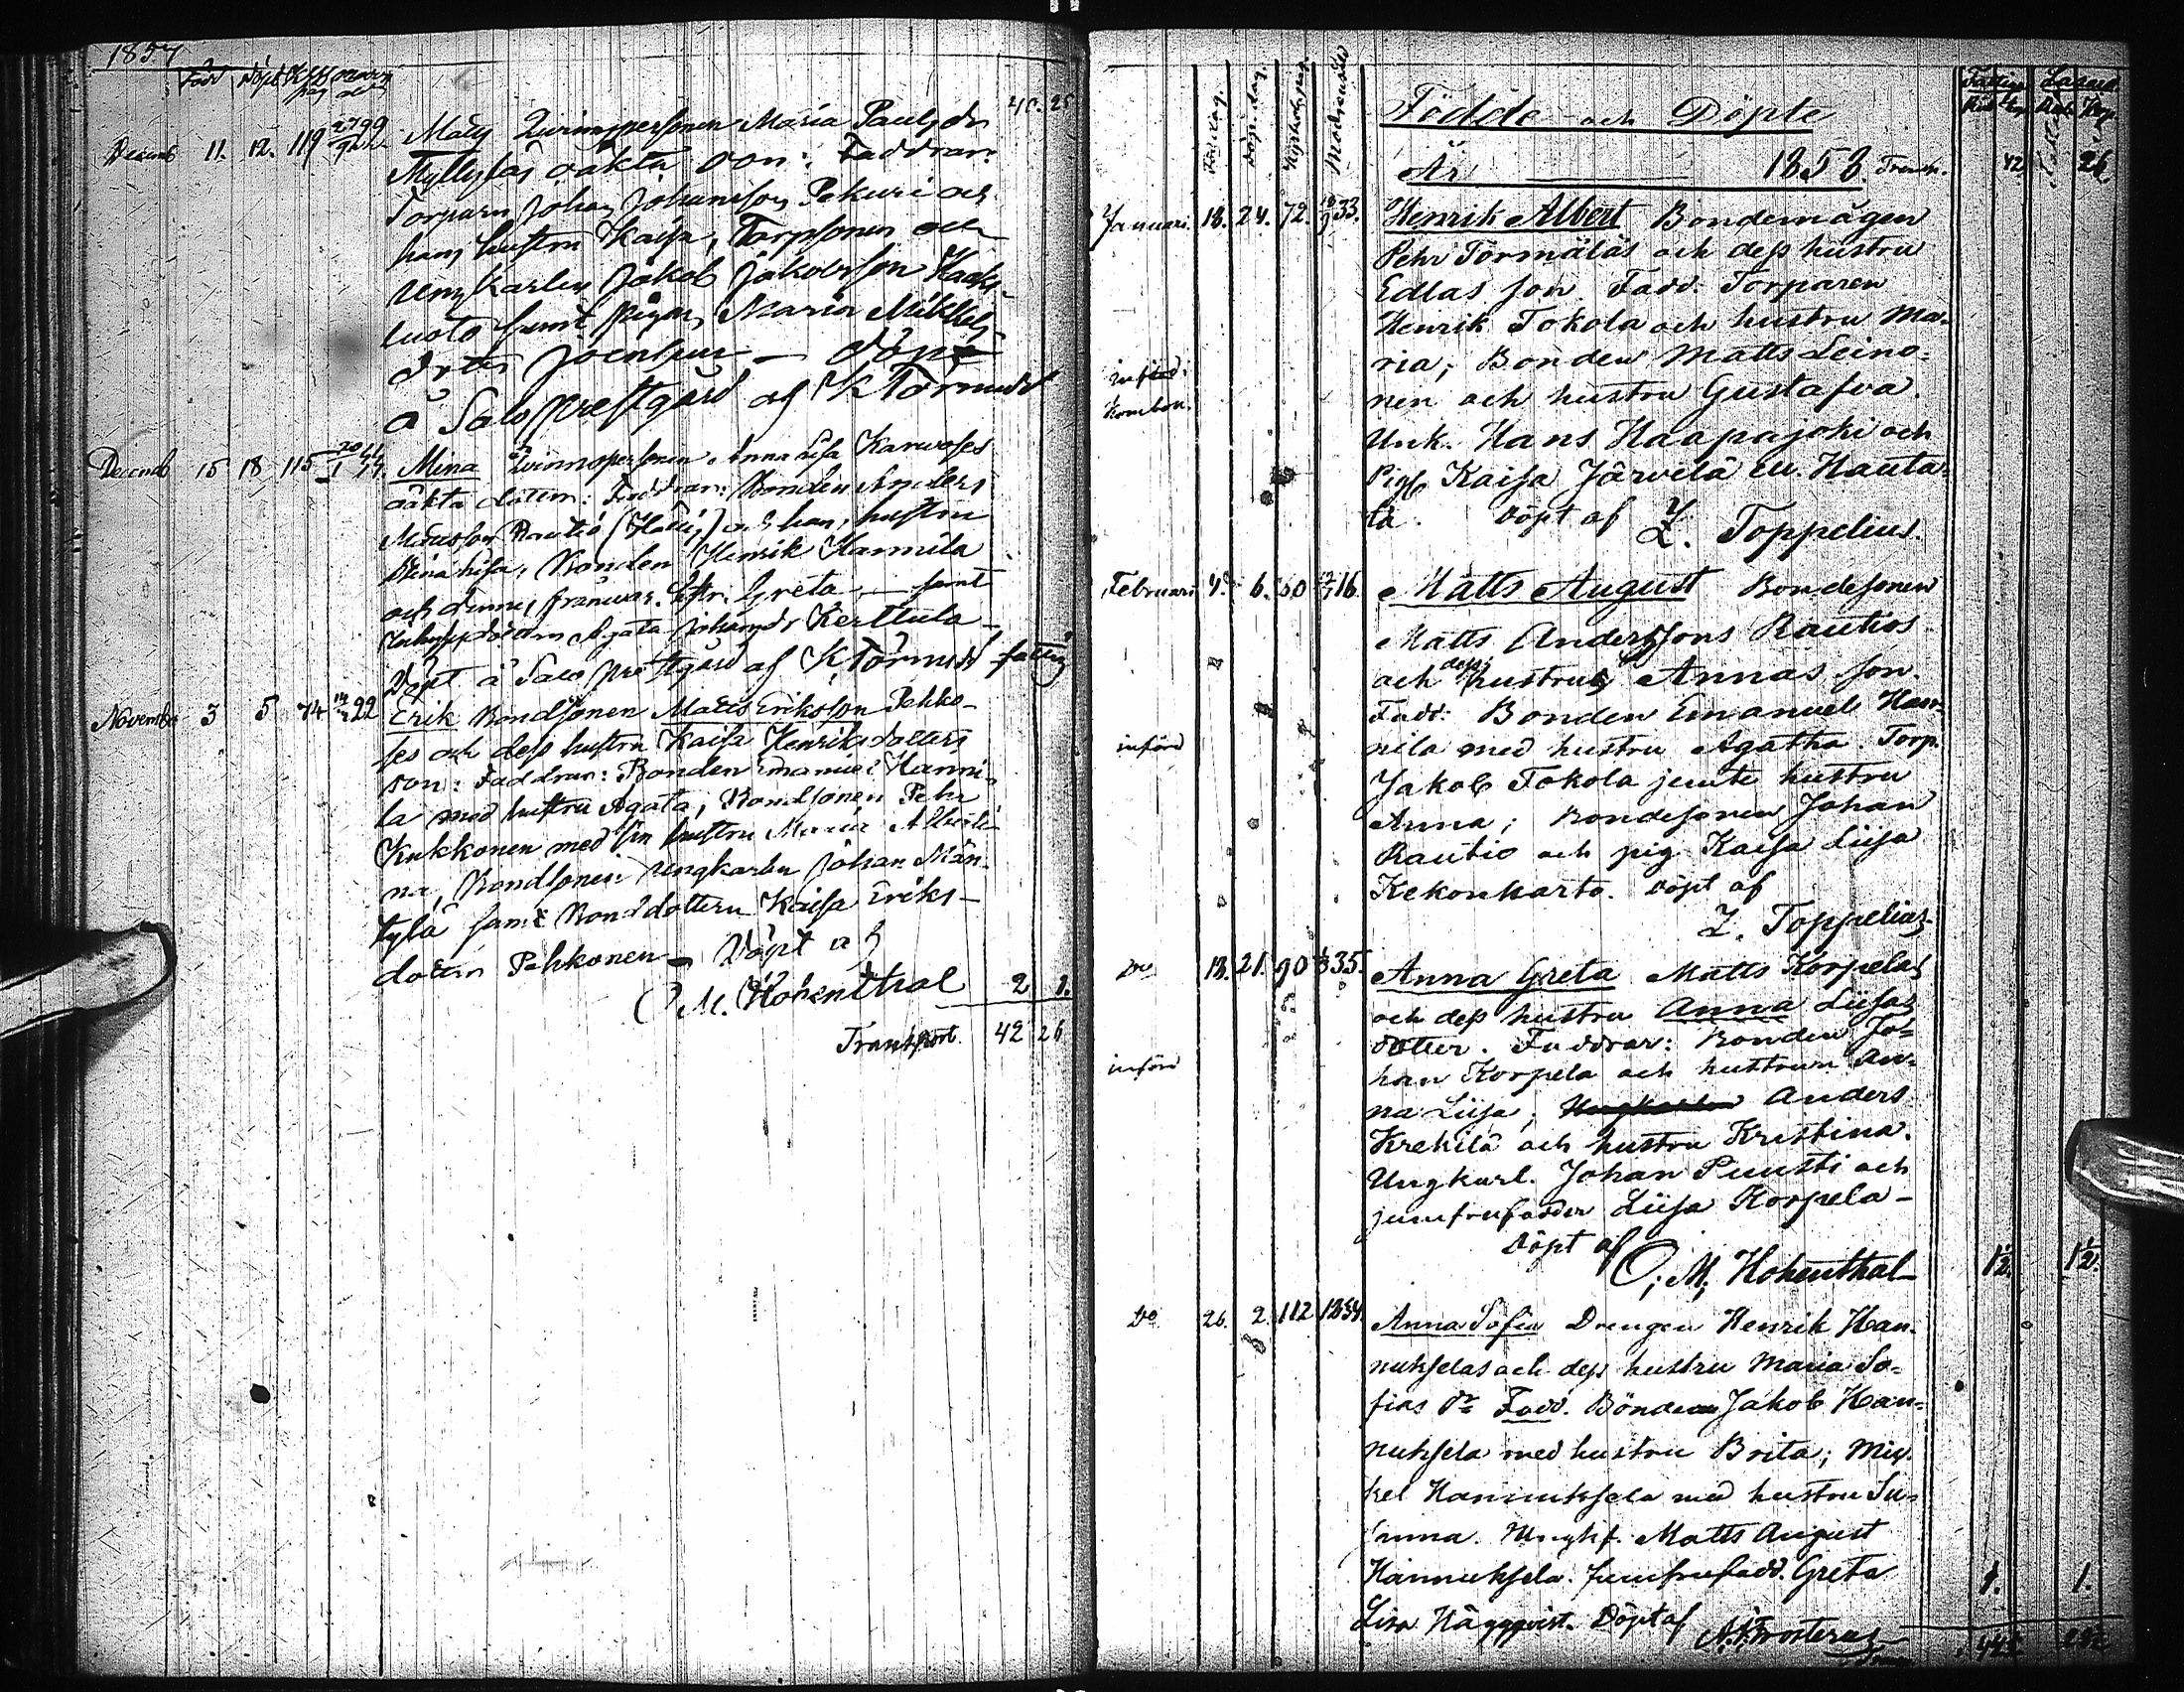 1857
Född Döpt
40. 25
Decemb 11. 12. 119 Mats Qvinnspersonen Maria Paulsdr
Myllyläs oäkta son: Faddrar:
Torparn Johan Johansson Pekuri och
hans hustru Kaisa, Torpsonen och
ungkarlen Jakob Jakobsson Haaka-
luoto samt pigan Maria Mikkels-
dotter Joensuu — Döpt
å Salo prestgård af K Törnudd
Decemb 15 18 115 Mina Qvinnspersonen Anna Lisa Karvoses
oäkta dotter: Faddrar: Bonden Anders
Mattsson Rautio och hans hustru
Stina Lisa, Bonden Henrik Hannila
och dennes frånvar. hstr. Greta, — samt
Agata Johansdr Kerttula —
Döpt å Salo prestgård af K Törnudd fattig
November 3 5 74 22 Erik Bondsonen Matts Eriksson Pehko-
ses och dess hustru Kaisa Henriksdotters
son: Faddrar: Bonden Emanuel Hanni-
la med hustru Agata; Bondsonen Pehr
Kukkonen med sin hustru Maria Alberti-
na, Bondsonen ungkarlen Johan Män-
tylä samt Bonddottern Kaisa Eriks-
dotter Pehkonen — Döpt af
O M. Hohenthal 2 1.
Transport. 42 26
Född dag. Döp. dag. Moders ålder
Födde och Döpte
År 1858. Transp. 42 26.
Januari. 18. 24. 72. 33. Henrik Albert Bondemågen
Pehr Törmäläs och dess hustru
Edlas son. Fadd: Torparen
Henrik Tokola och hustru Ma-
ria; Bonden Matts Leino-
nen och hustru Gustafva.
Unk. Hans Haapajoki och
Pig. Kaisa Järvelä eu. Hauta-
la. Döpt af Z. Toppelius.
Februari 4. 6. 50 16. Matts August Bondesonen
Matts Anderssons Rautios
och dess hustrus Annas son.
Fadd: Bonden Emanuel Han-
nila med hustru Agatha. Torp.
införd
Jakob Tokola jemte hustru
Anna; Bondesonen Johan
Rautio och pig. Kaisa Liisa
Kekonkarto. Döpt af
Z. Toppelius
Do 13. 21. 90 35. Anna Greta Matts Korpelas
och dess hustru Anna Liisas
dotter. Faddrar: Bonden Jo-
införd
han Korpela och hustrun An-
na Liisa; Ungkarlen Anders
Krekilä och hustru Kristina.
Ungkarl. Johan Puusti och
jumfrufadder Liisa Korpela —
Döpt af
O. M. Hohenthal 1½. 1½.
Do 26. 2 112 Anna Sofia Drengen Henrik Han-
nukselas och dess hustru Maria So-
fias dr Fadd. Bönderna Jakob Han-
nuksela med hustru Brita; Mic-
kel Hannuksela med hustru Su-
sanna. Matts August
Hannuksela. Jumfrufadd. Greta
Lisa Häggqvist. Döpt af A. Frosterus
1. 1.